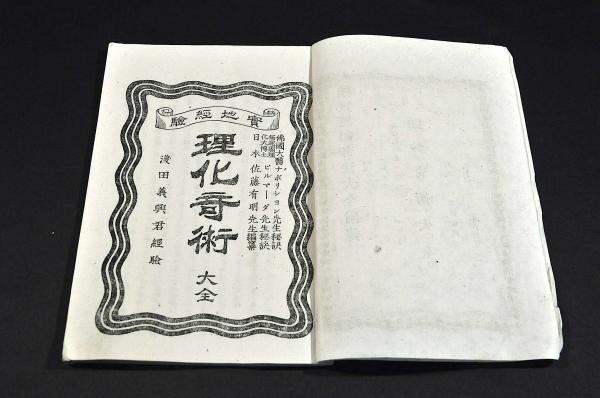 實地經驗
佛國大醫ナポリション先生秘訣
化大博士ビルマーダ先生秘訣
日本佐藤有明先生編纂
理化奇術大全
濱田義興君經驗